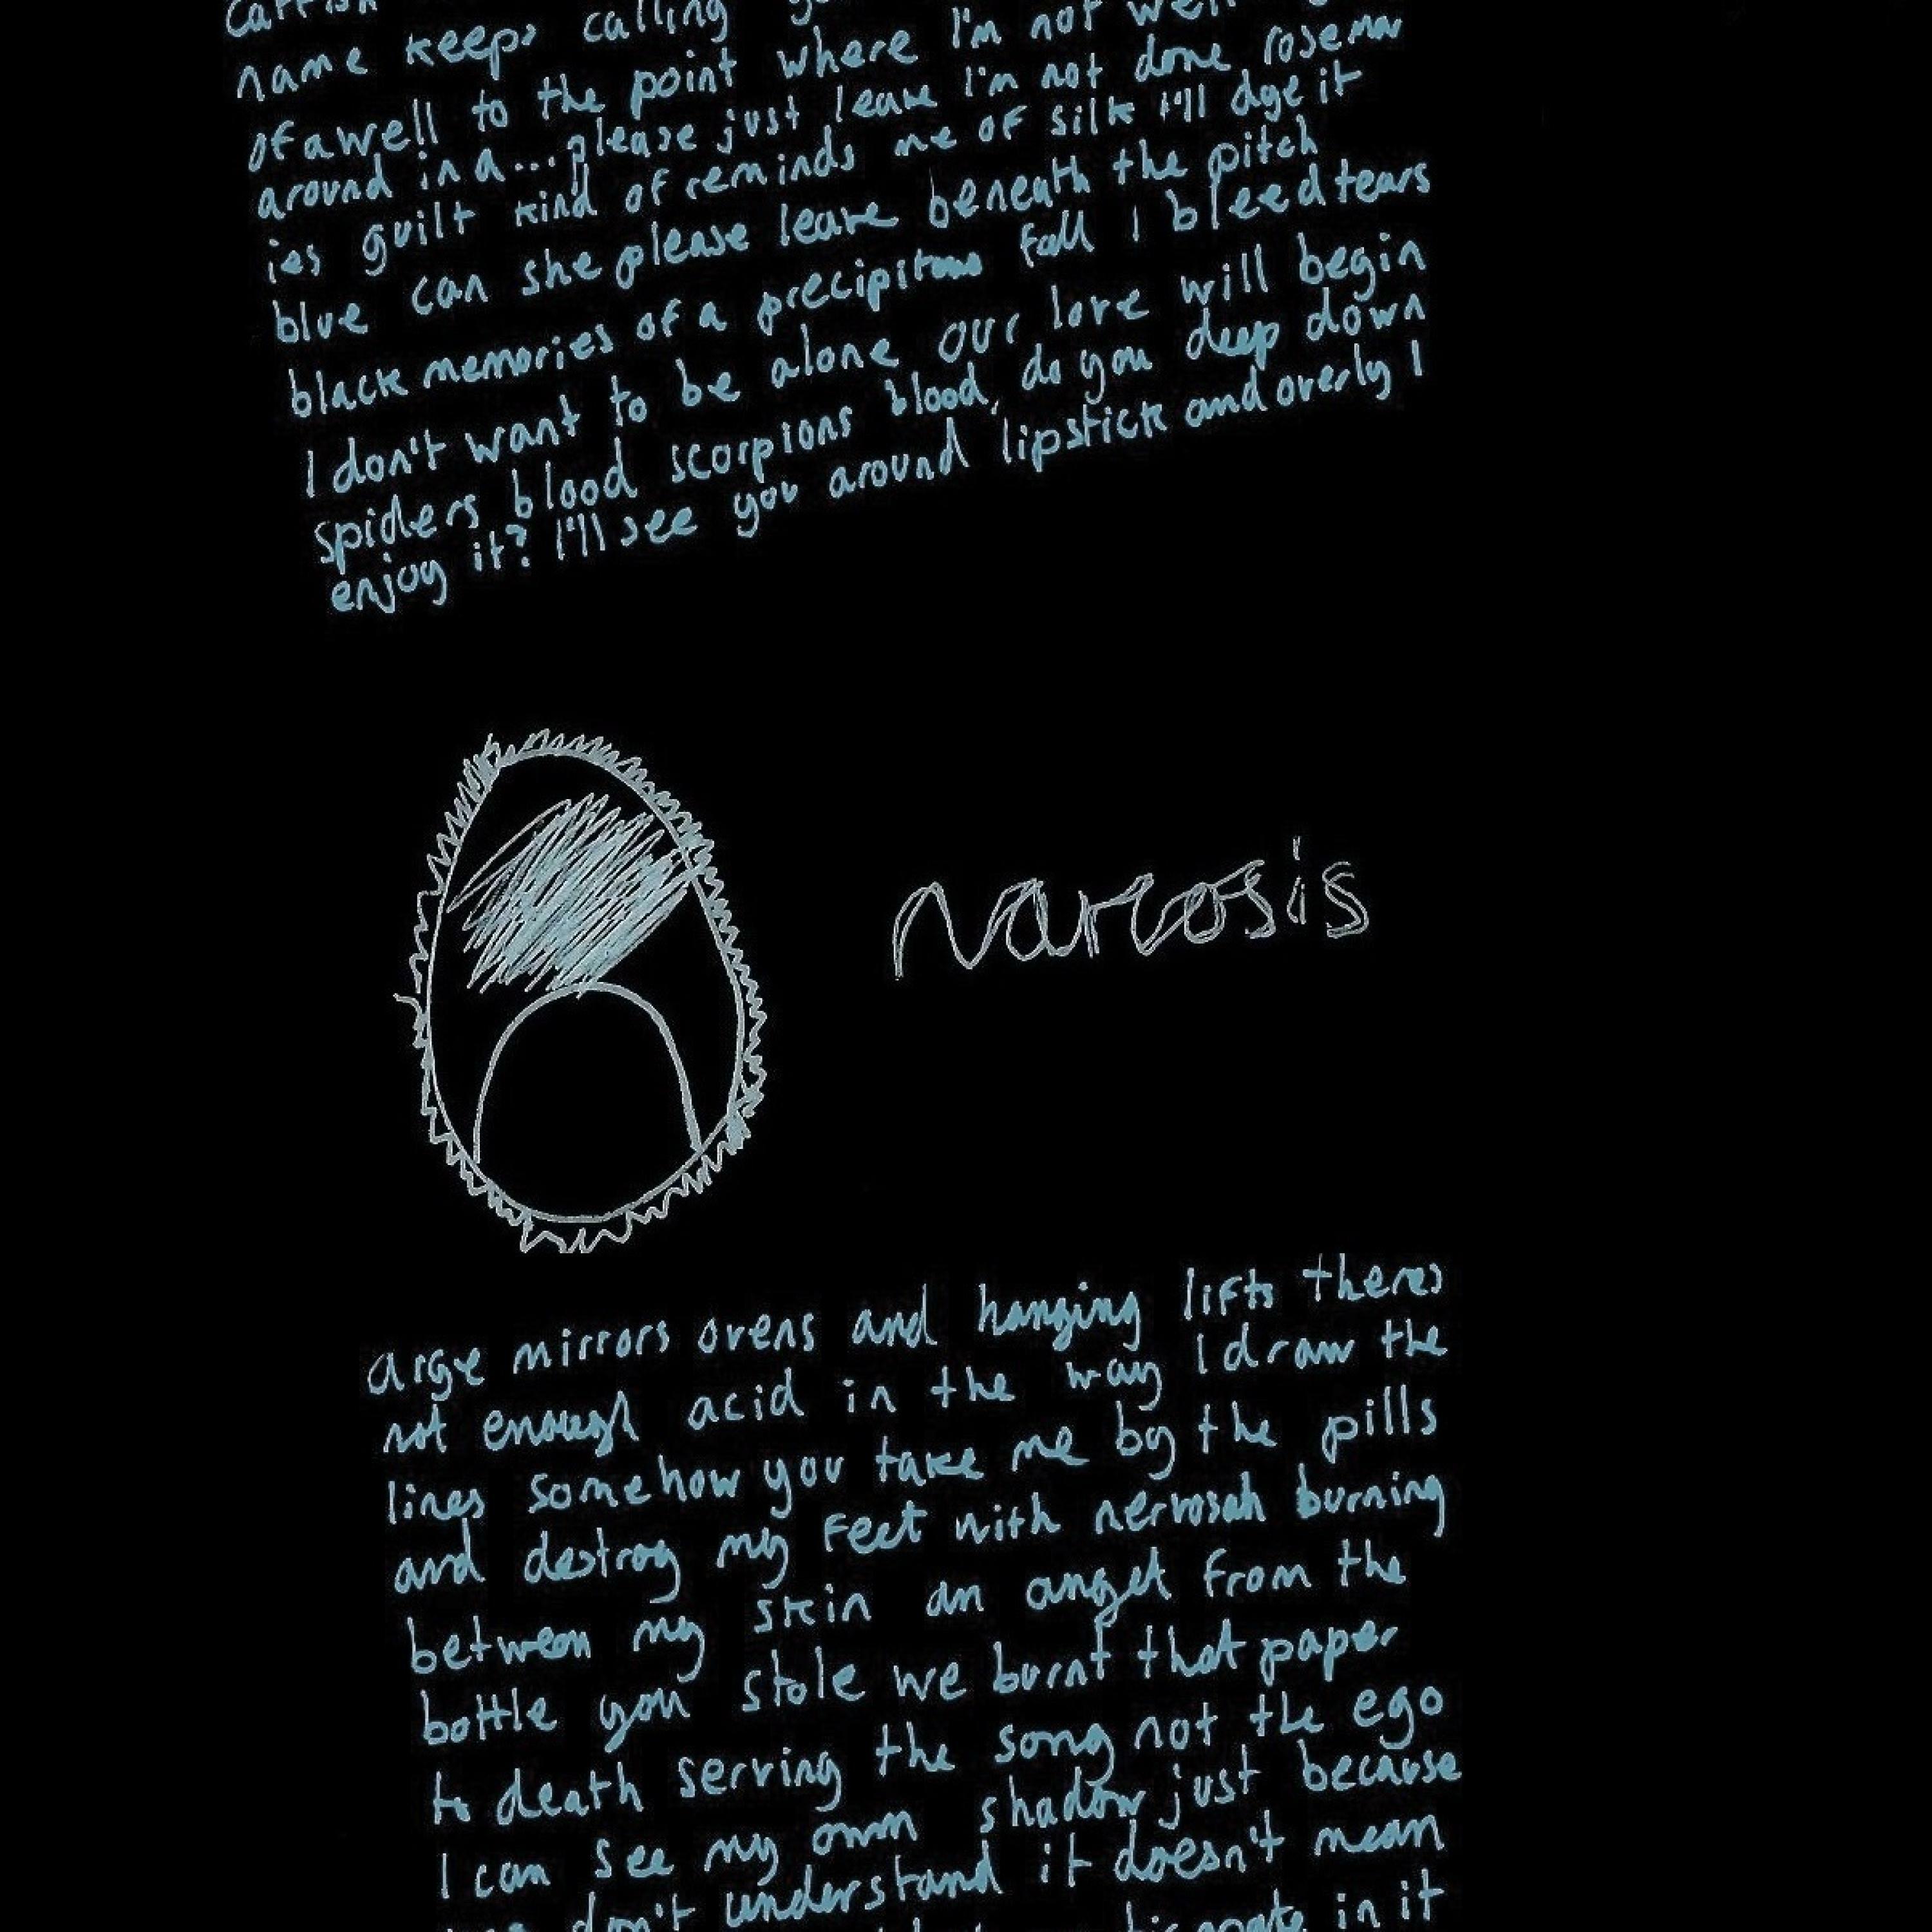 name keeps calling
of a well to the point where I'm not well
around in a... please just leave I'm not done rosemar
ies guilt kind of reminds me of silk I'll dye it
blue can she please leave beneath the pitch
black memories of a precipitous fall I bleed tears
I don't want to be alone our love will begin
spiders blood scorpions blood, do you deep down
enjoy it? I'll see you around lipstick and overly l
narcosis
arge mirrors ovens and hanging lifts theres
not enough acid in the way I draw the
lines somehow you take me by the pills
and destroy my feet with nervosah burning
between my skin an angel from the
bottle you stole we burnt that paper
to death serving the song not the ego
I can see my own shadow just because
don't understand it doesn't mean
in it